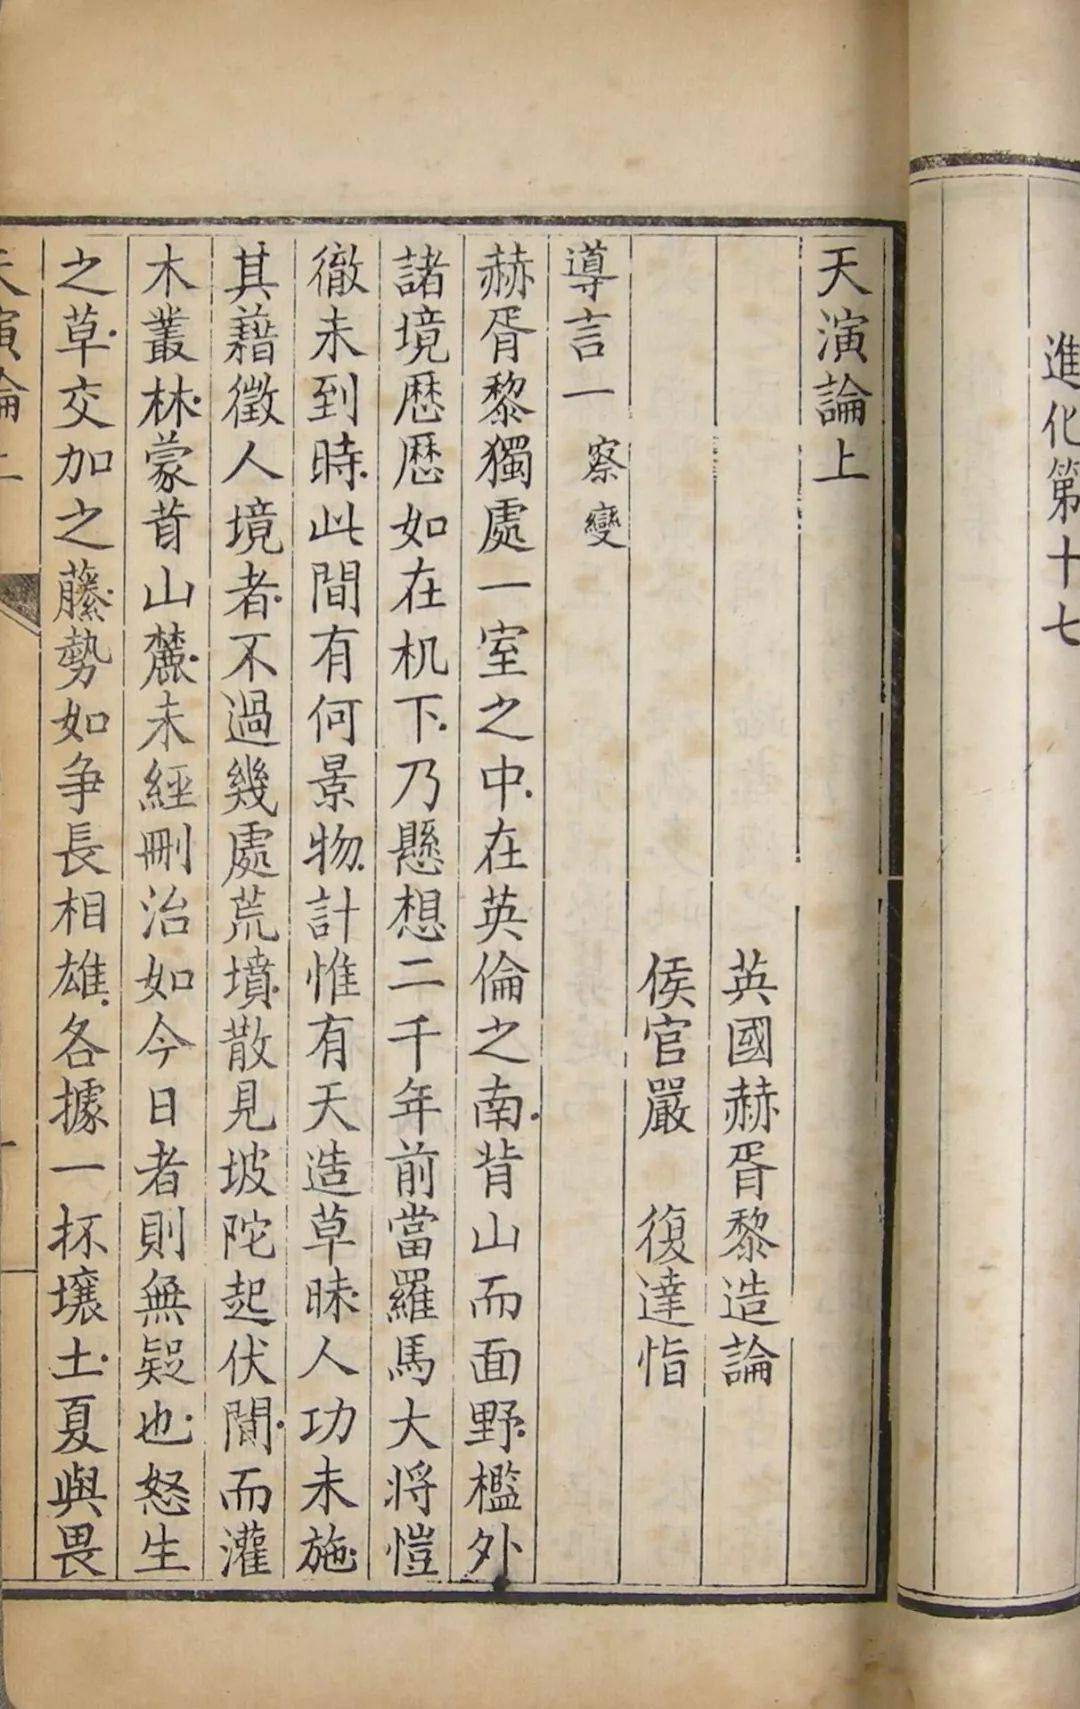 進化第十七
天演論上
英國赫胥黎造論
侯官嚴 復達恉
導言一 察變
赫胥黎獨處一室之中.在英倫之南.背山而面野.檻外
諸境歷歷如在机下.乃懸想二千年前當羅馬大將愷
徹未到時.此間有何景物.計惟有天造草昧.人功未施.
其藉徵人境者.不過幾處荒墳.散見坡陀起伏間.而灌
木叢林.蒙茸山麓.未經刪治如今日者則無疑也.怒生
之草.交加之藤.勢如爭長相雄.各據一抔壤土.夏與畏
天演論上
一